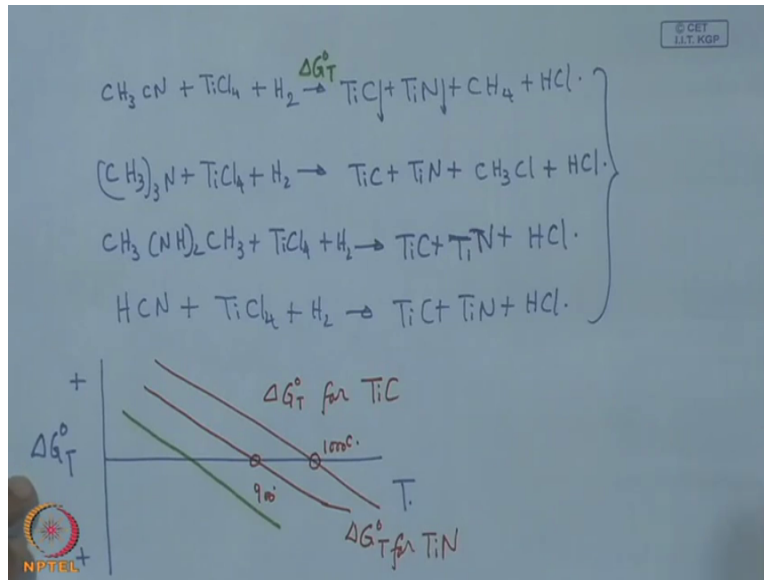 © CET
I.I.T. KGP
ΔG°T
CH3CN + TiCl4 + H2 → TiC↓ + TiN↓ + CH4 + HCl.
(CH3)3N + TiCl4 + H2 → TiC + TiN + CH3Cl + HCl.
CH3(NH)2CH3 + TiCl4 + H2 → TiC + TiN + HCl.
HCN + TiCl4 + H2 → TiC + TiN + HCl.
+
ΔG°T for TiC
ΔG°T
1000c.
900°
T.
ΔG°T for TiN
+
NPTEL